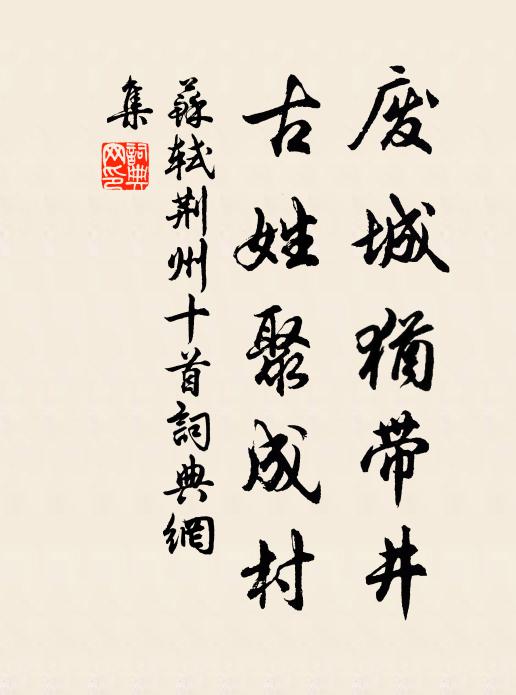 废城犹带井
古姓聚成村
蘇轼荆州十首詞典網
集
詞典
网印